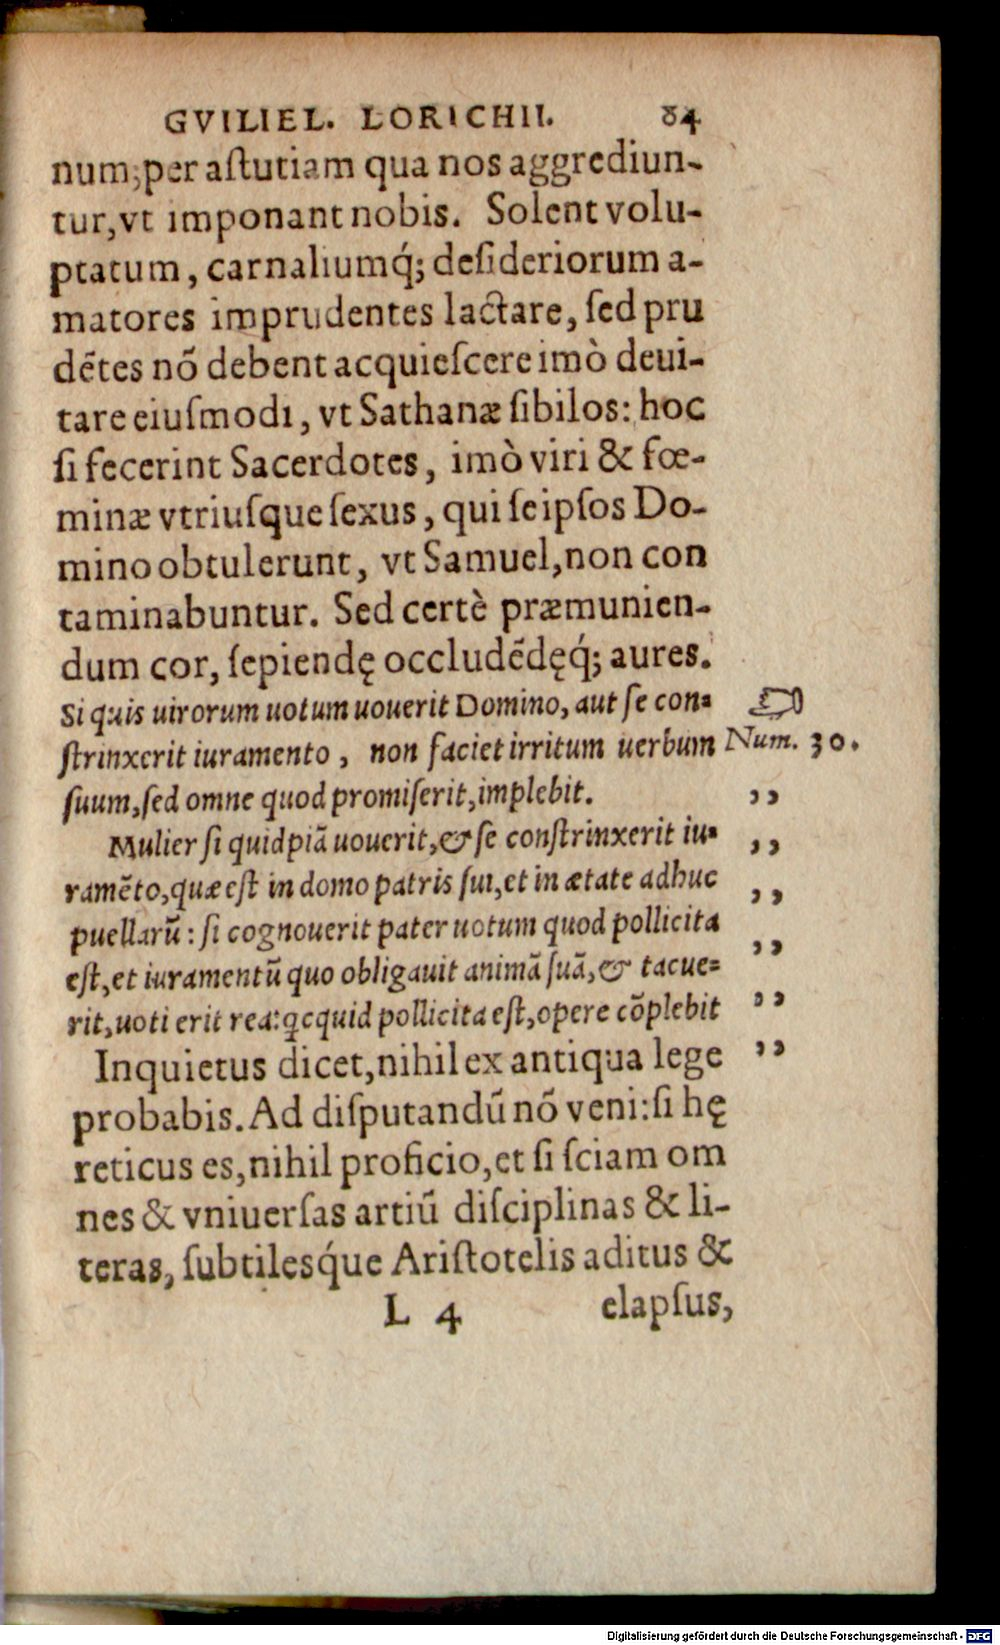 GVILIEL. LORICHII. 84
num;per aſtutiam qua nos aggrediun-
tur,vt imponant nobis. Solent volu-
ptatum, carnaliumq́; deſideriorum a-
matores imprudentes lactare, ſed pru
dẽtes nõ debent acquieſcere imò deui-
tare eiuſmodi, vt Sathanæ ſibilos: hoc
ſi fecerint Sacerdotes, imò viri & fœ-
minæ vtriuſque ſexus, qui ſeipſos Do-
mino obtulerunt, vt Samuel,non con
taminabuntur. Sed certè præmunien-
dum cor, ſepiendę occludẽdęq́; aures.
Si quis uirorum uotum uouerit Domino, aut ſe con=
ſtrinxerit iuramento, non faciet irritum uerbum Num. 30.
ſuum,ſed omne quod promiſerit,implebit. ,,
Mulier ſi quidpiã uouerit,& ſe conſtrinxerit iu= ,,
ramẽto,quæ eſt in domo patris ſui,et in ætate adhuc ,,
puellarũ: ſi cognouerit pater uotum quod pollicita ,,
eſt,et iuramentũ quo obligauit animã ſuã,& tacue= ,,
rit,uoti erit rea:qcquid pollicita eſt,opere cõplebit ,,
Inquietus dicet,nihil ex antiqua lege
probabis. Ad diſputandũ nõ veni:ſi hę
reticus es,nihil proficio,et ſi ſciam om
nes & vniuerſas artiũ diſciplinas & li-
teras, ſubtilesq́ue Ariſtotelis aditus &
L 4 elapſus,
Digitalisierung gefördert durch die Deutsche Forschungsgemeinschaft - DFG